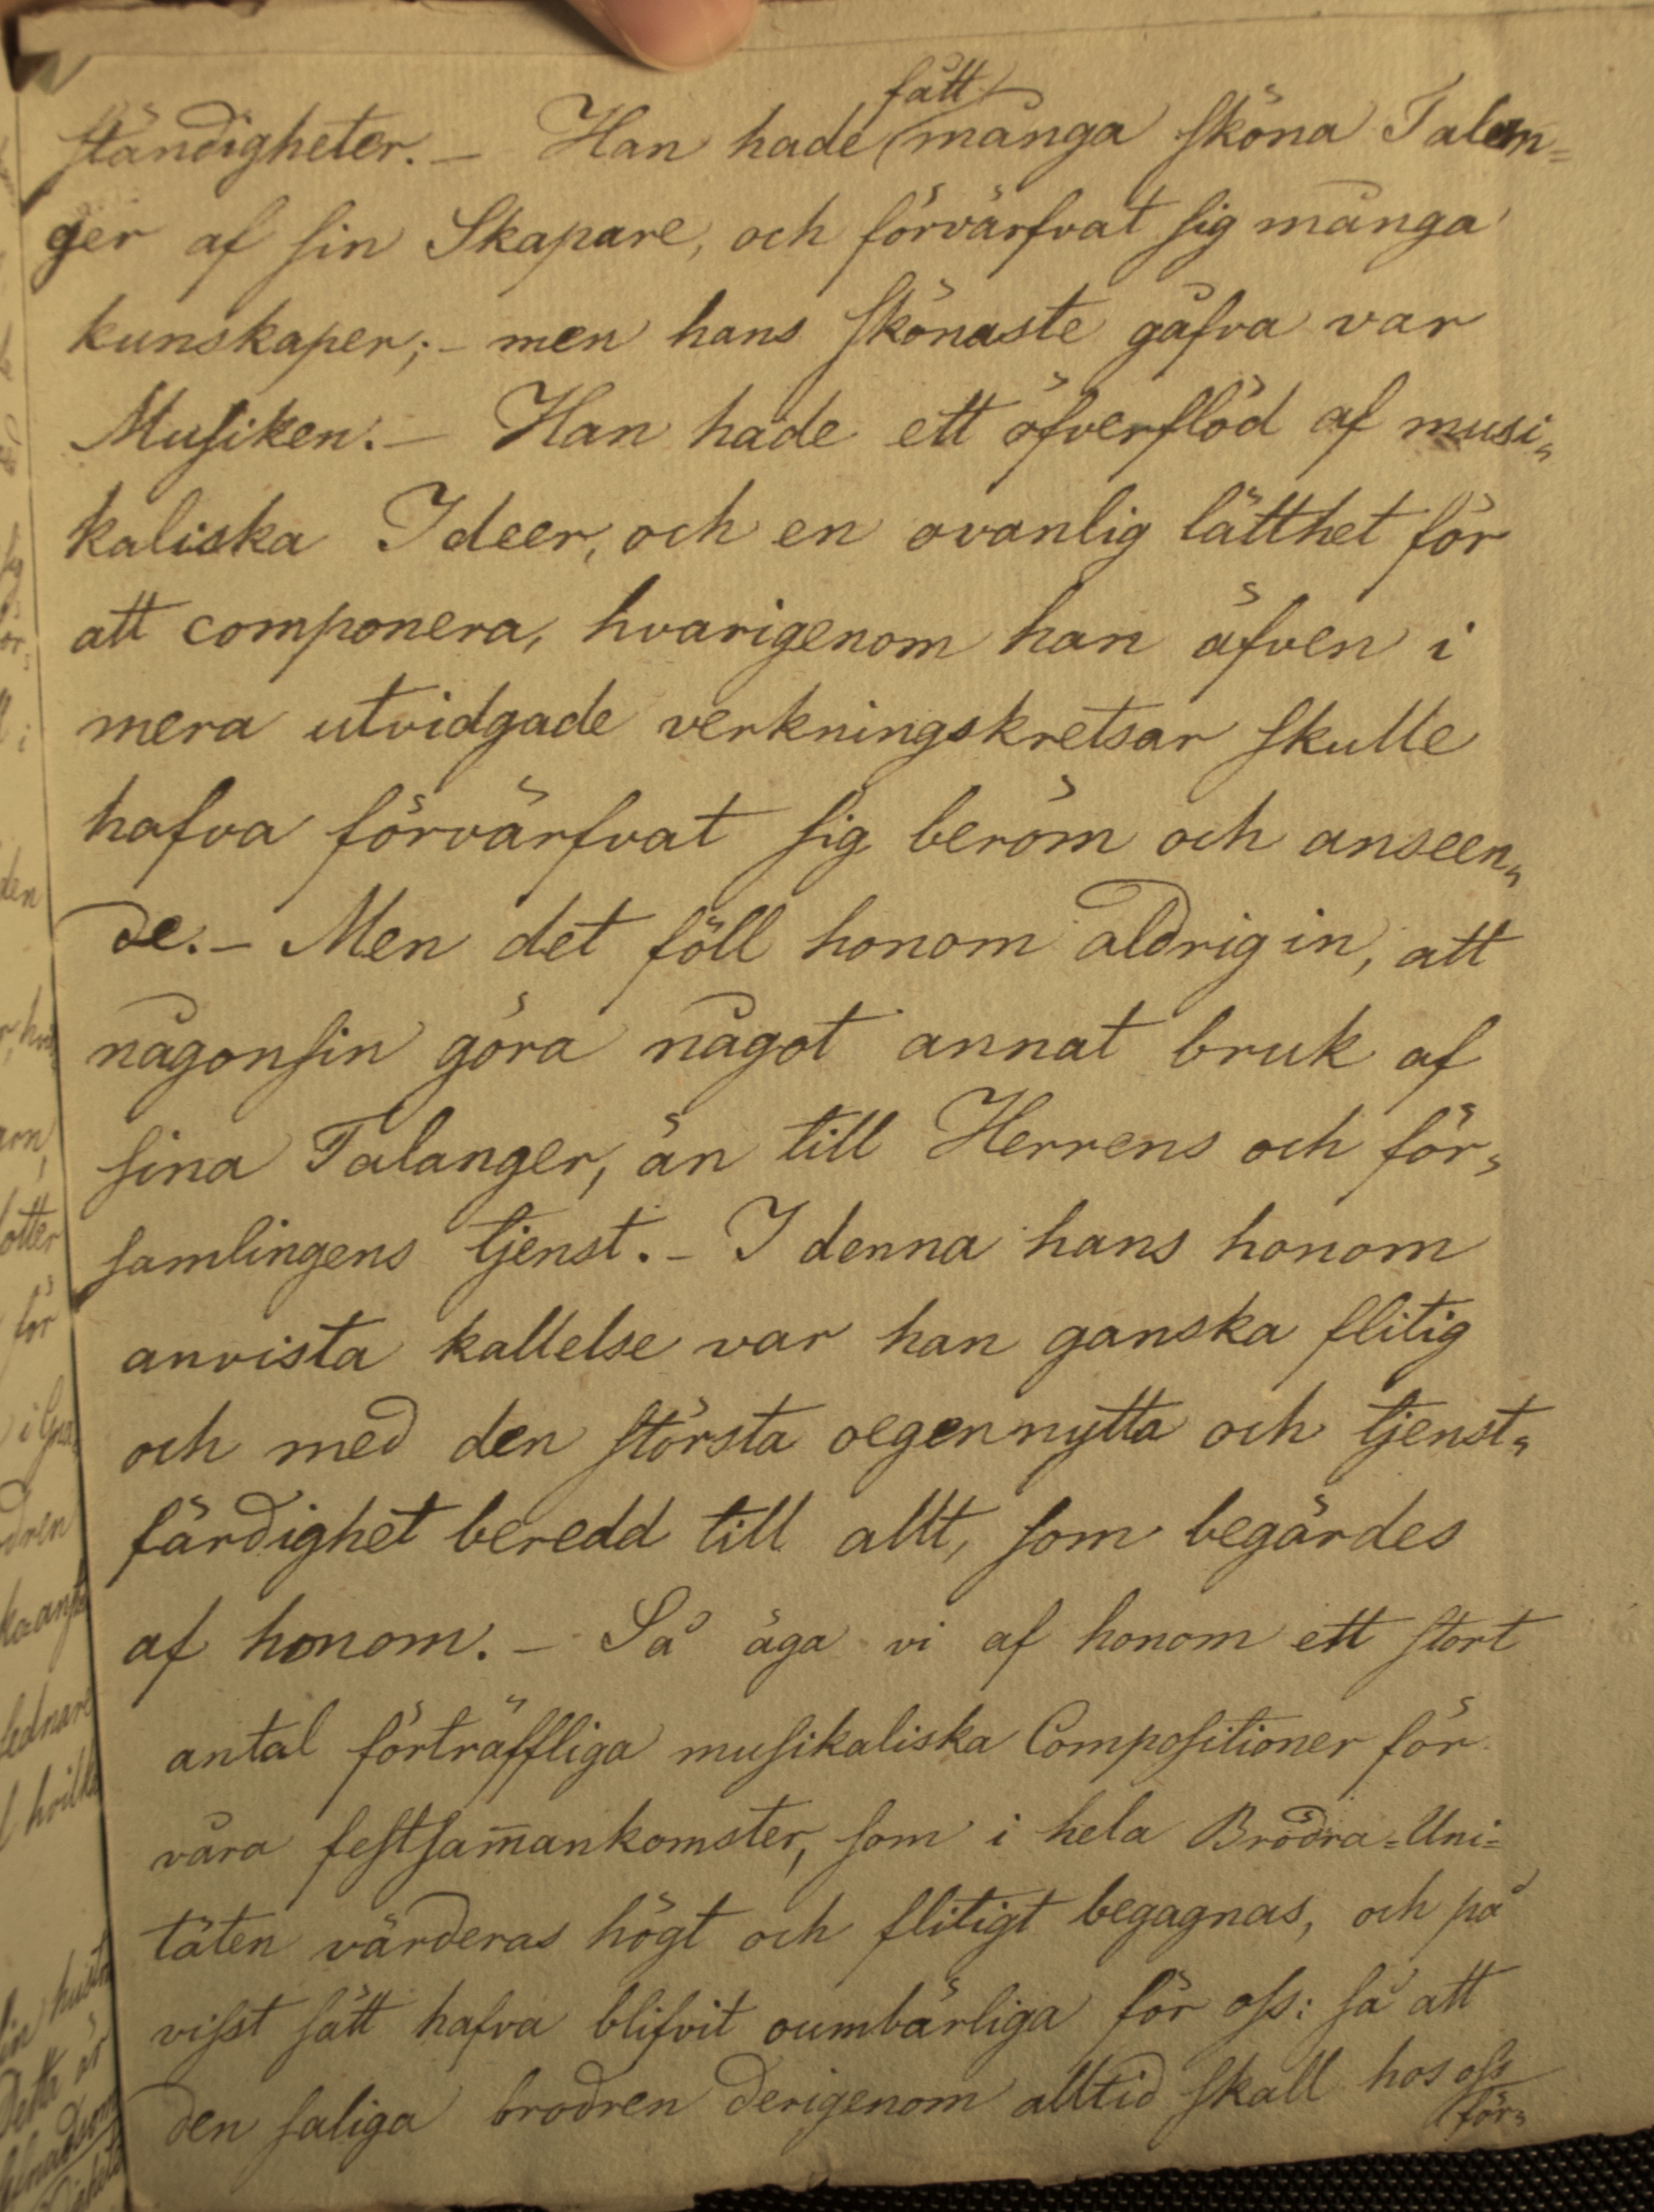 fått
ständigheter. – Han hade många sköna Talan=
ger af sin Skapare, och förvärfvat sig många
kunskaper; – men hans skönaste gåfva var
Musiken. – Han hade ett öfverflöd af musi„
kaliska Ideer, och en ovanlig lätthet för
att componera, hvarigenom han äfven i
mera utvidgade verkningskretsar skulle
hafva förvärfvat sig beröm och anseen„
de. – Men det föll honom aldrig in, att
någonsin göra något annat bruk af
sina Talanger, än till Herrens och för„
samlingens tjenst. – I denna hans honom
anvista kallelse var han ganska flitig
och med den största oegennytta och tjenst„
färdighet beredd till allt, som begärdes
af honom. – Så äga vi af honom ett stort
antal förträffliga musikaliska Compositioner för
våra festsam̅ankomster, som i hela Brödra=Uni=
täten värderas högt och flitigt begagnas, och på
visst sätt hafva blifvit oumbärliga för oss: så att
den saliga brodren derigenom alltid skall hos oss
för„